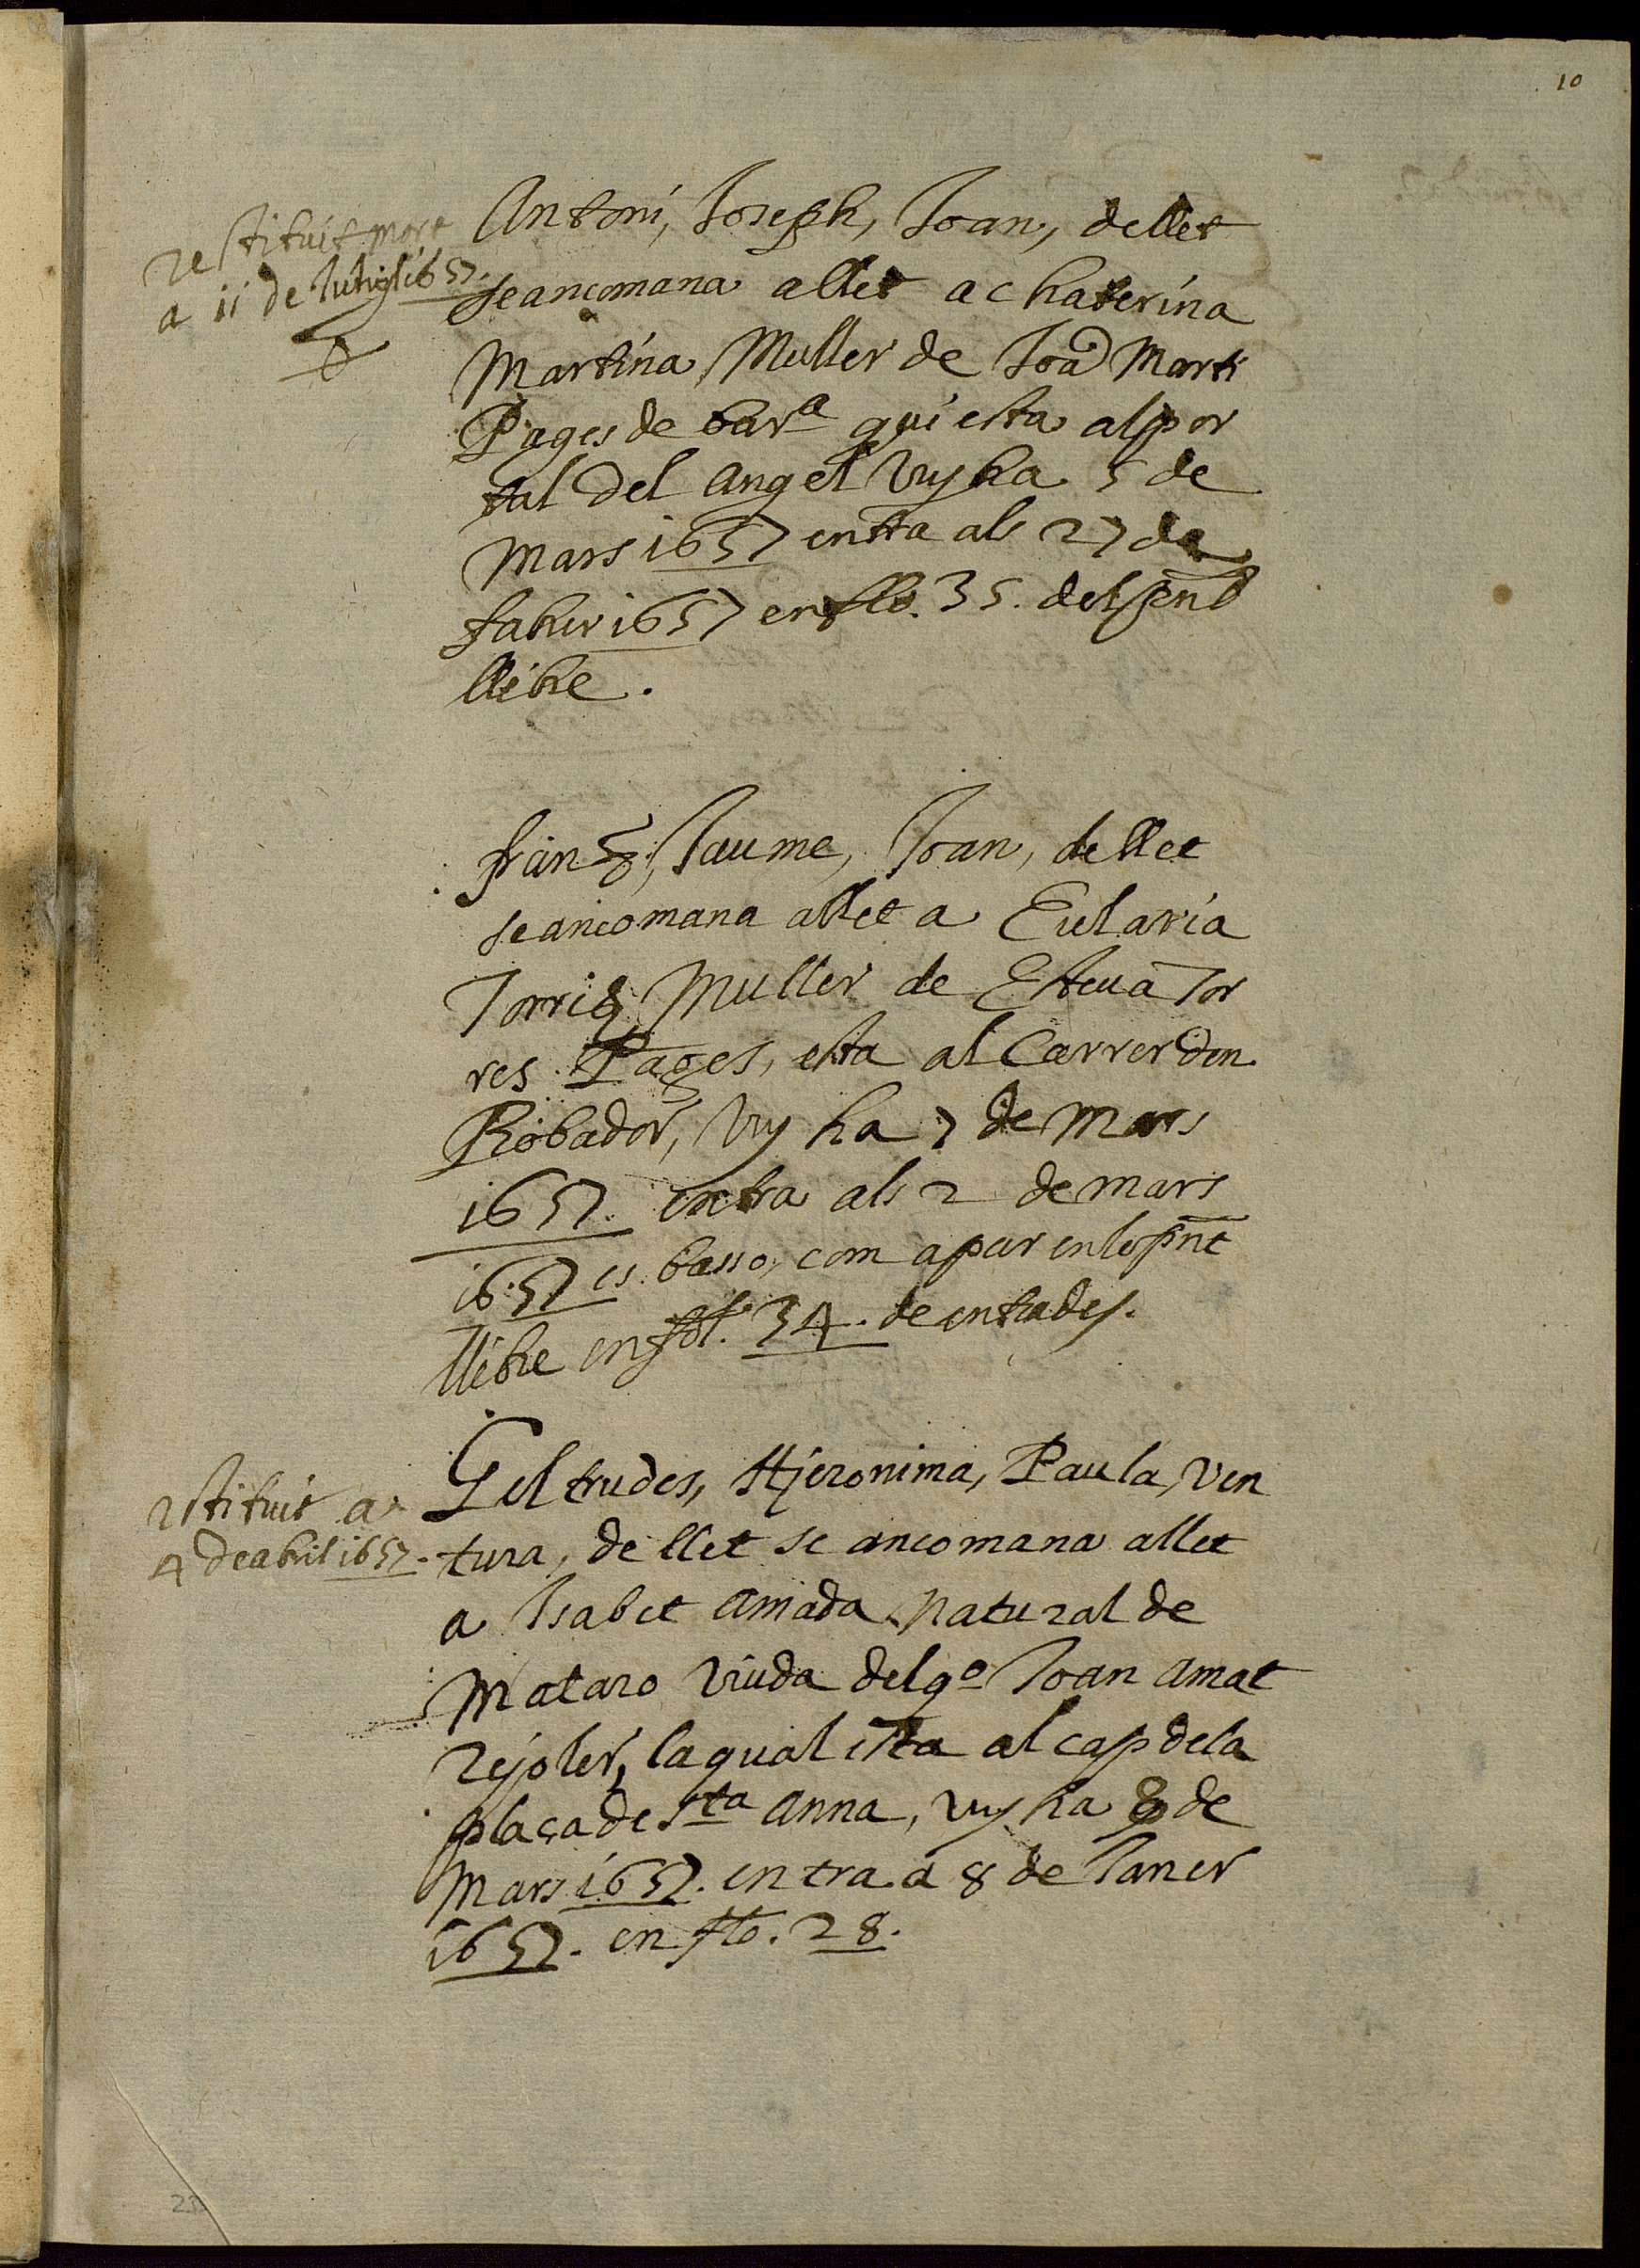 10
restituit mort
a 11 de Juliol 1657.
Antoni, Joseph, Joan, de llet
se ancomana allet a Chaterina
Martina Muller de Joã Marti
Pages de bar.ª qui esta al por
tal del Angel Vuy ha 5 de
Mars 1657 entra als 27 de
fabrer 1657 en flo. 35. del pent
llibre.
fran.co, Jaume, Joan, de llet
se ancomana allet a Eularia
Torres Muller de Esteua Tor
res Pages, esta al Carrer den
Robador, Vuy ha 7 de Mars
1657. entra als 2 de mars
1657 es basso, com apar en lo pnt
llibre en fol. 34. de entrades.
restituit a
4 de abril 1657.
Geltrudes, Hieronima, Paula, Ven
tura, de llet se ancomana allet
a Isabet Amada natural de
Mataro Viuda del qº Joan Amat
rejoler, la qual esta al cap de la
plaça de Sta Anna, vuy ha 8 de
Mars 1657. entra a 8 de Janer
1657. en flo. 28.
23